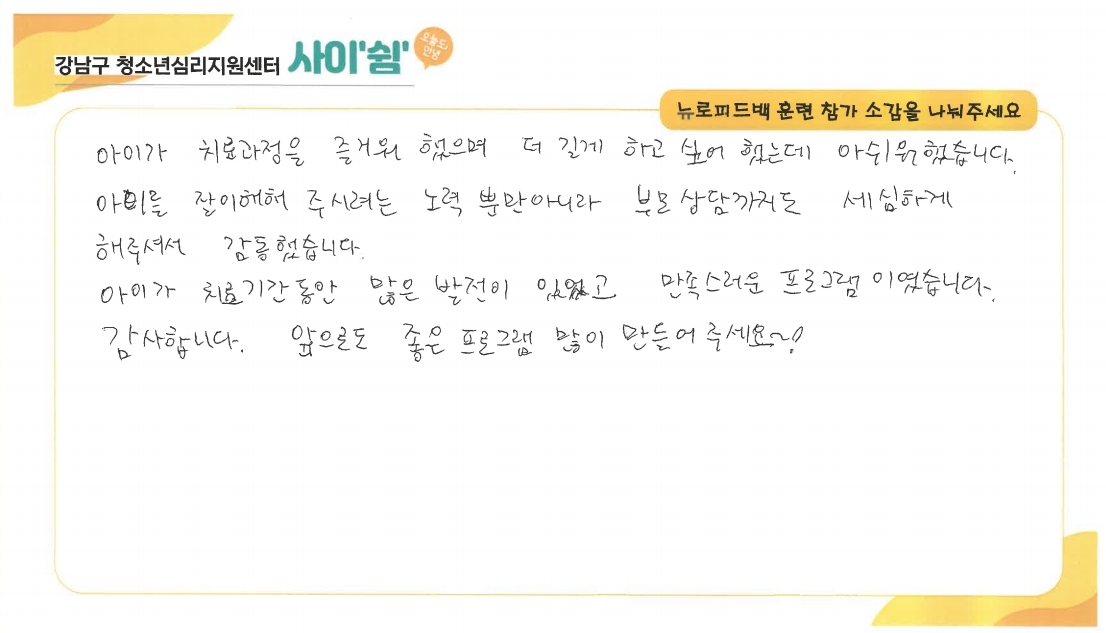 강남구 청소년심리지원센터 사이'쉼' 오늘도 안녕
뉴로피드백 훈련 참가 소감을 나눠주세요
아이가 치료과정을 즐거워 했으며 더 길게 하고 싶어 했는데 아쉬워했습니다.
아이를 잘이해해 주시려는 노력 뿐만아니라 부모상담까지도 세심하게
해주셔서 감동했습니다.
아이가 치료기간동안 많은 발전이 있었고 만족스러운 프로그램이였습니다.
감사합니다. 앞으로도 좋은 프로그램 많이 만들어 주세요~!